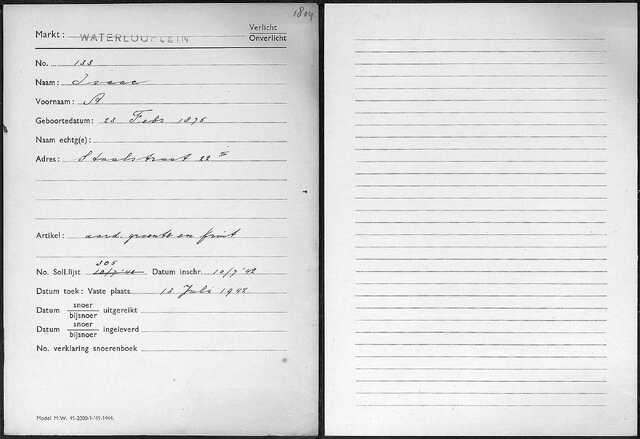 1804
Markt: WATERLOOPLEIN Verlicht
Onverlicht
No. 133
Naam: Isaac
Voornaam: A
Geboortedatum: 23 Febr 1876
Naam echtg(e):
Adres: Staalstraat 22
Artikel: aard. groente en fruit
305
No. Soll.lijst 10/7'42 Datum inschr. 10/7'42
Datum toek: Vaste plaats 13 Juli 1942
Datum snoer uitgereikt
bijsnoer
Datum snoer ingeleverd
bijsnoer
No. verklaring snoerenboek